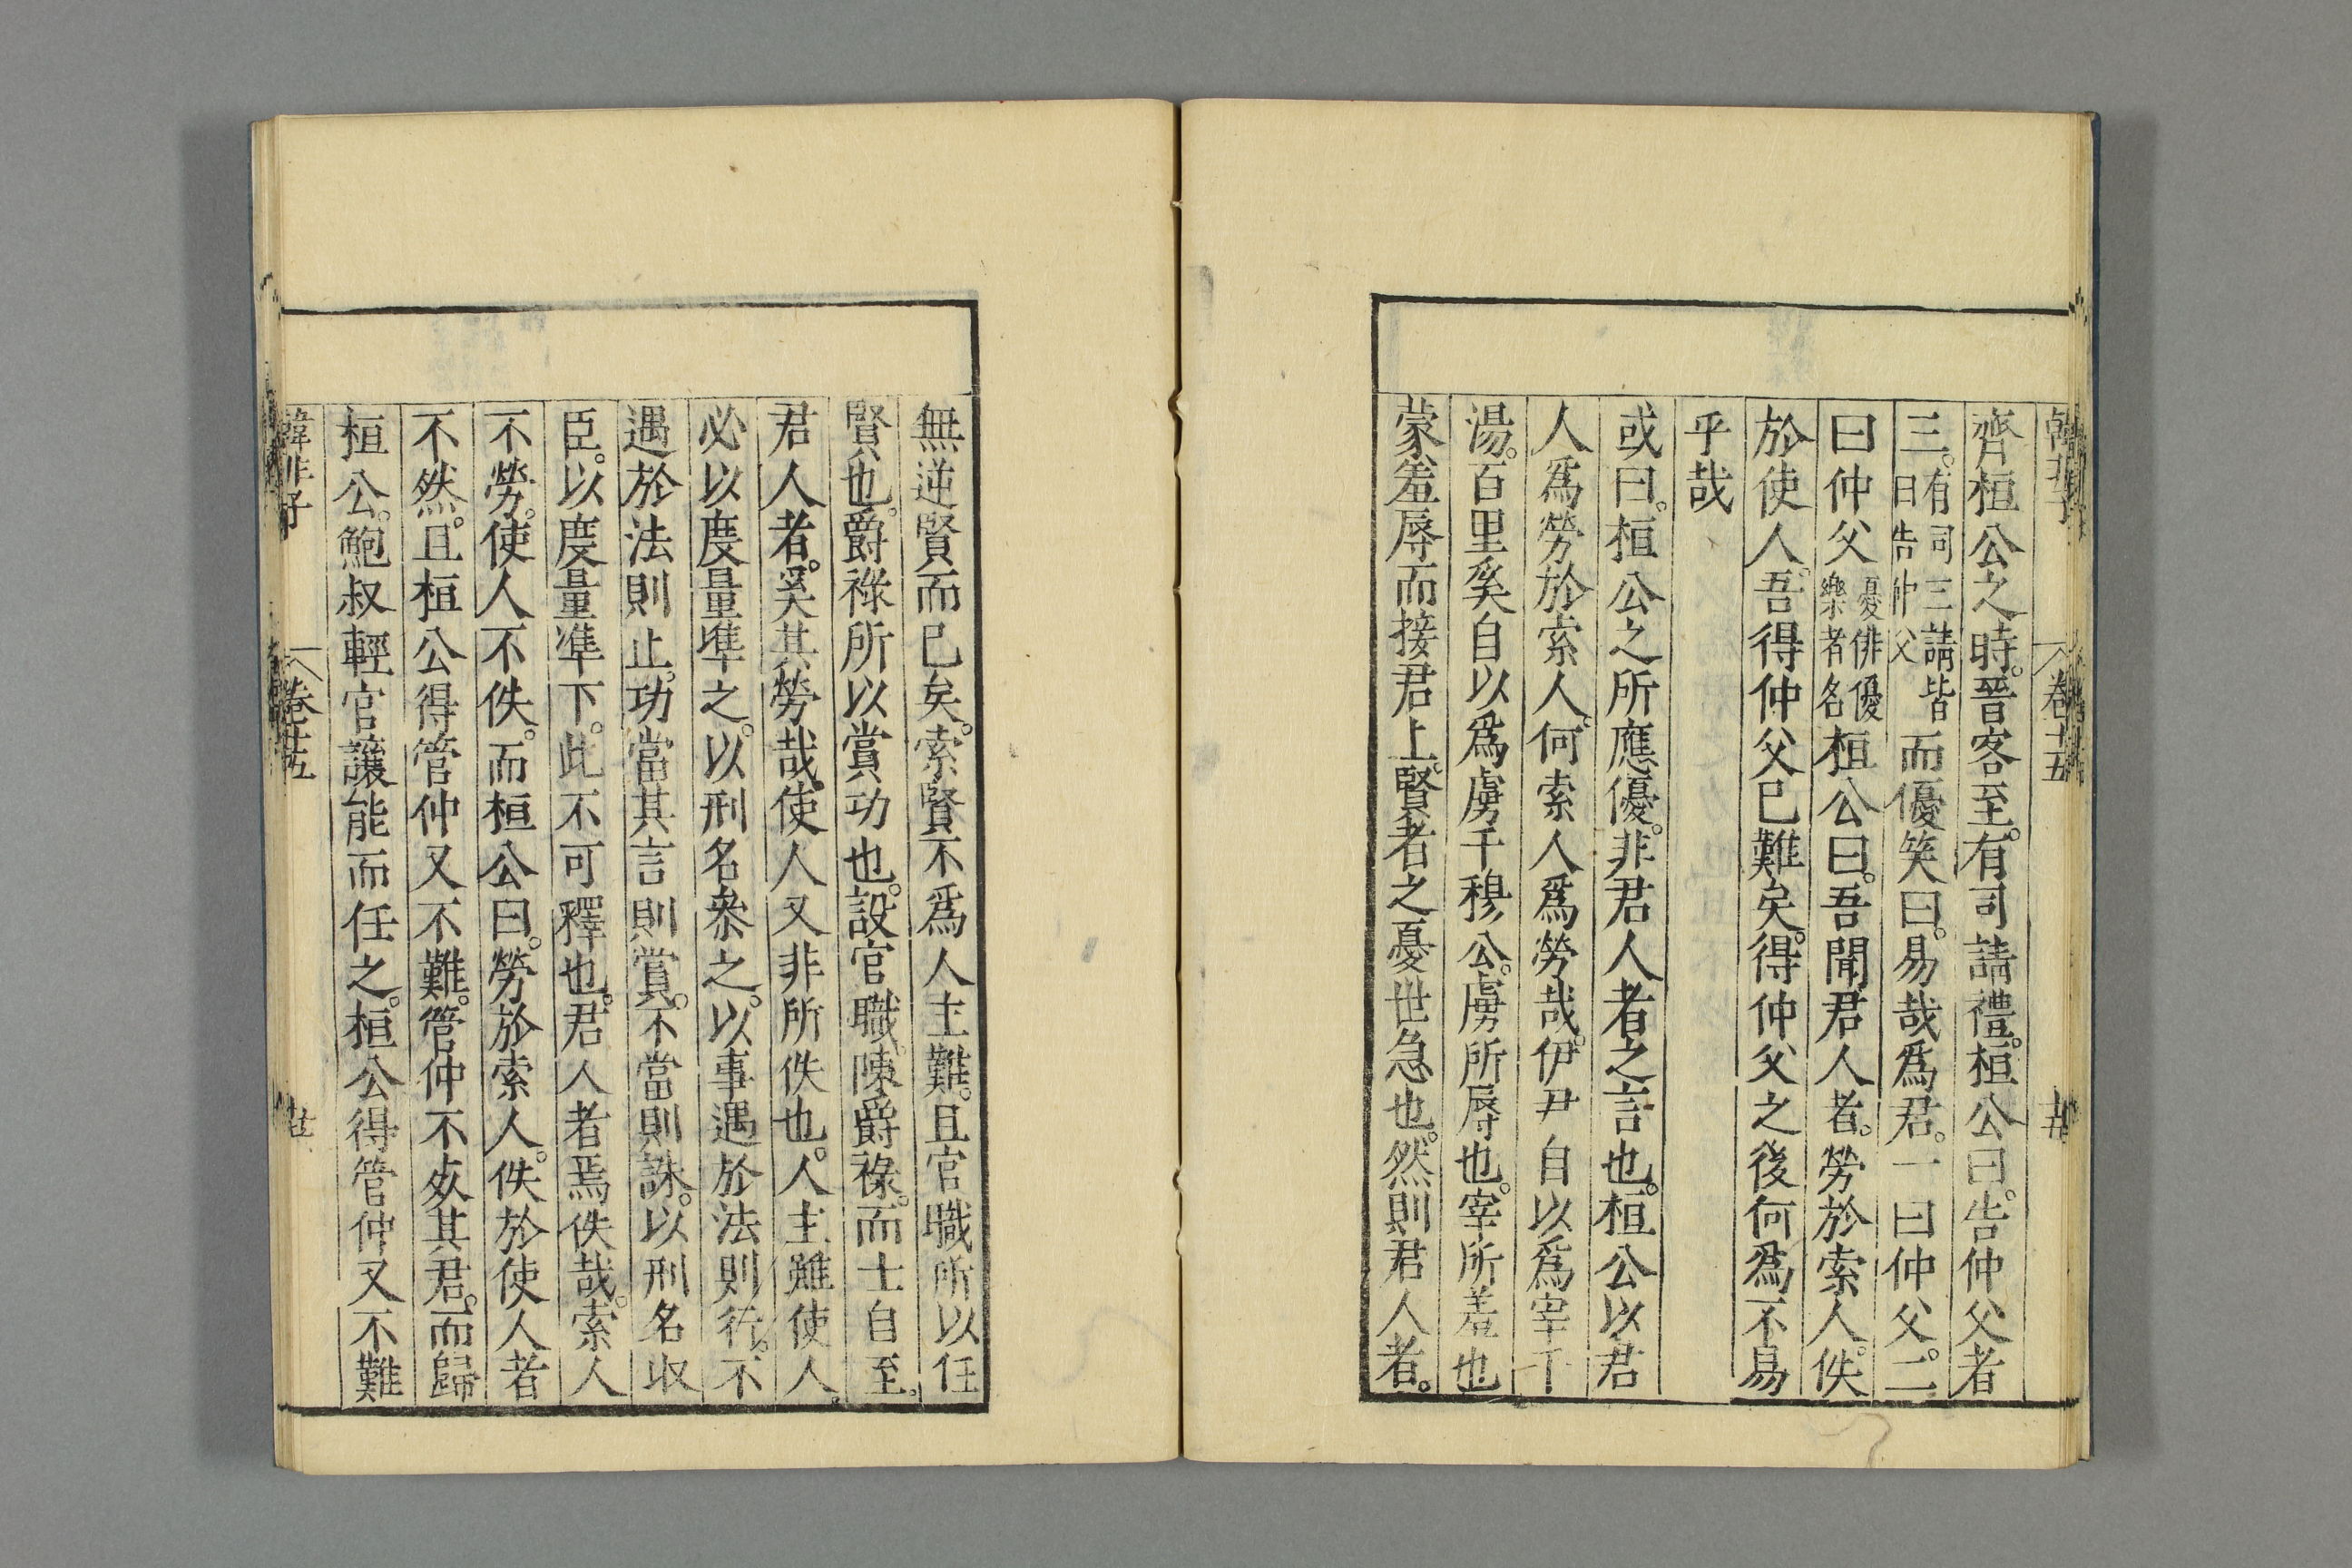 韓非子 卷十五
齊桓公之時。晉客至。有司請禮。桓公曰。告仲父者
三。有司三請皆曰告仲父而優笑曰。易哉爲君。一曰仲父。二
曰仲父憂俳優樂者名桓公曰。吾聞君人者。勞於索人。佚
於使人。吾得仲父已難矣。得仲父之後何爲不易
乎哉
或曰。桓公之所應優。非君人者之言也。桓公以君
人爲勞於索人。何索人爲勞哉。伊尹自以爲宰干
湯。百里奚自以爲虜干穆公。虜所辱也。宰所羞也
蒙羞辱而接君上。賢者之憂世急也。然則君人者。
無逆賢而已矣。索賢不爲人主難。且官職所以任
賢也。爵祿所以賞功也。設官職。陳爵祿。而士自至。
君人者。奚其勞哉。使人又非所佚也。人主雖使人。
必以度量準之。以刑名參之。以事遇於法則行。不
遇於法則止。功當其言則賞。不當則誅。以刑名收
臣。以度量準下。此不可釋也。君人者焉佚哉。索人
不勞。使人不佚。而桓公曰。勞於索人。佚於使人者
不然。且桓公得管仲又不難。管仲不歿其君。而歸
桓公。鮑叔輕官讓能而任之。桓公得管仲又不難
韓非子 卷十五 廿